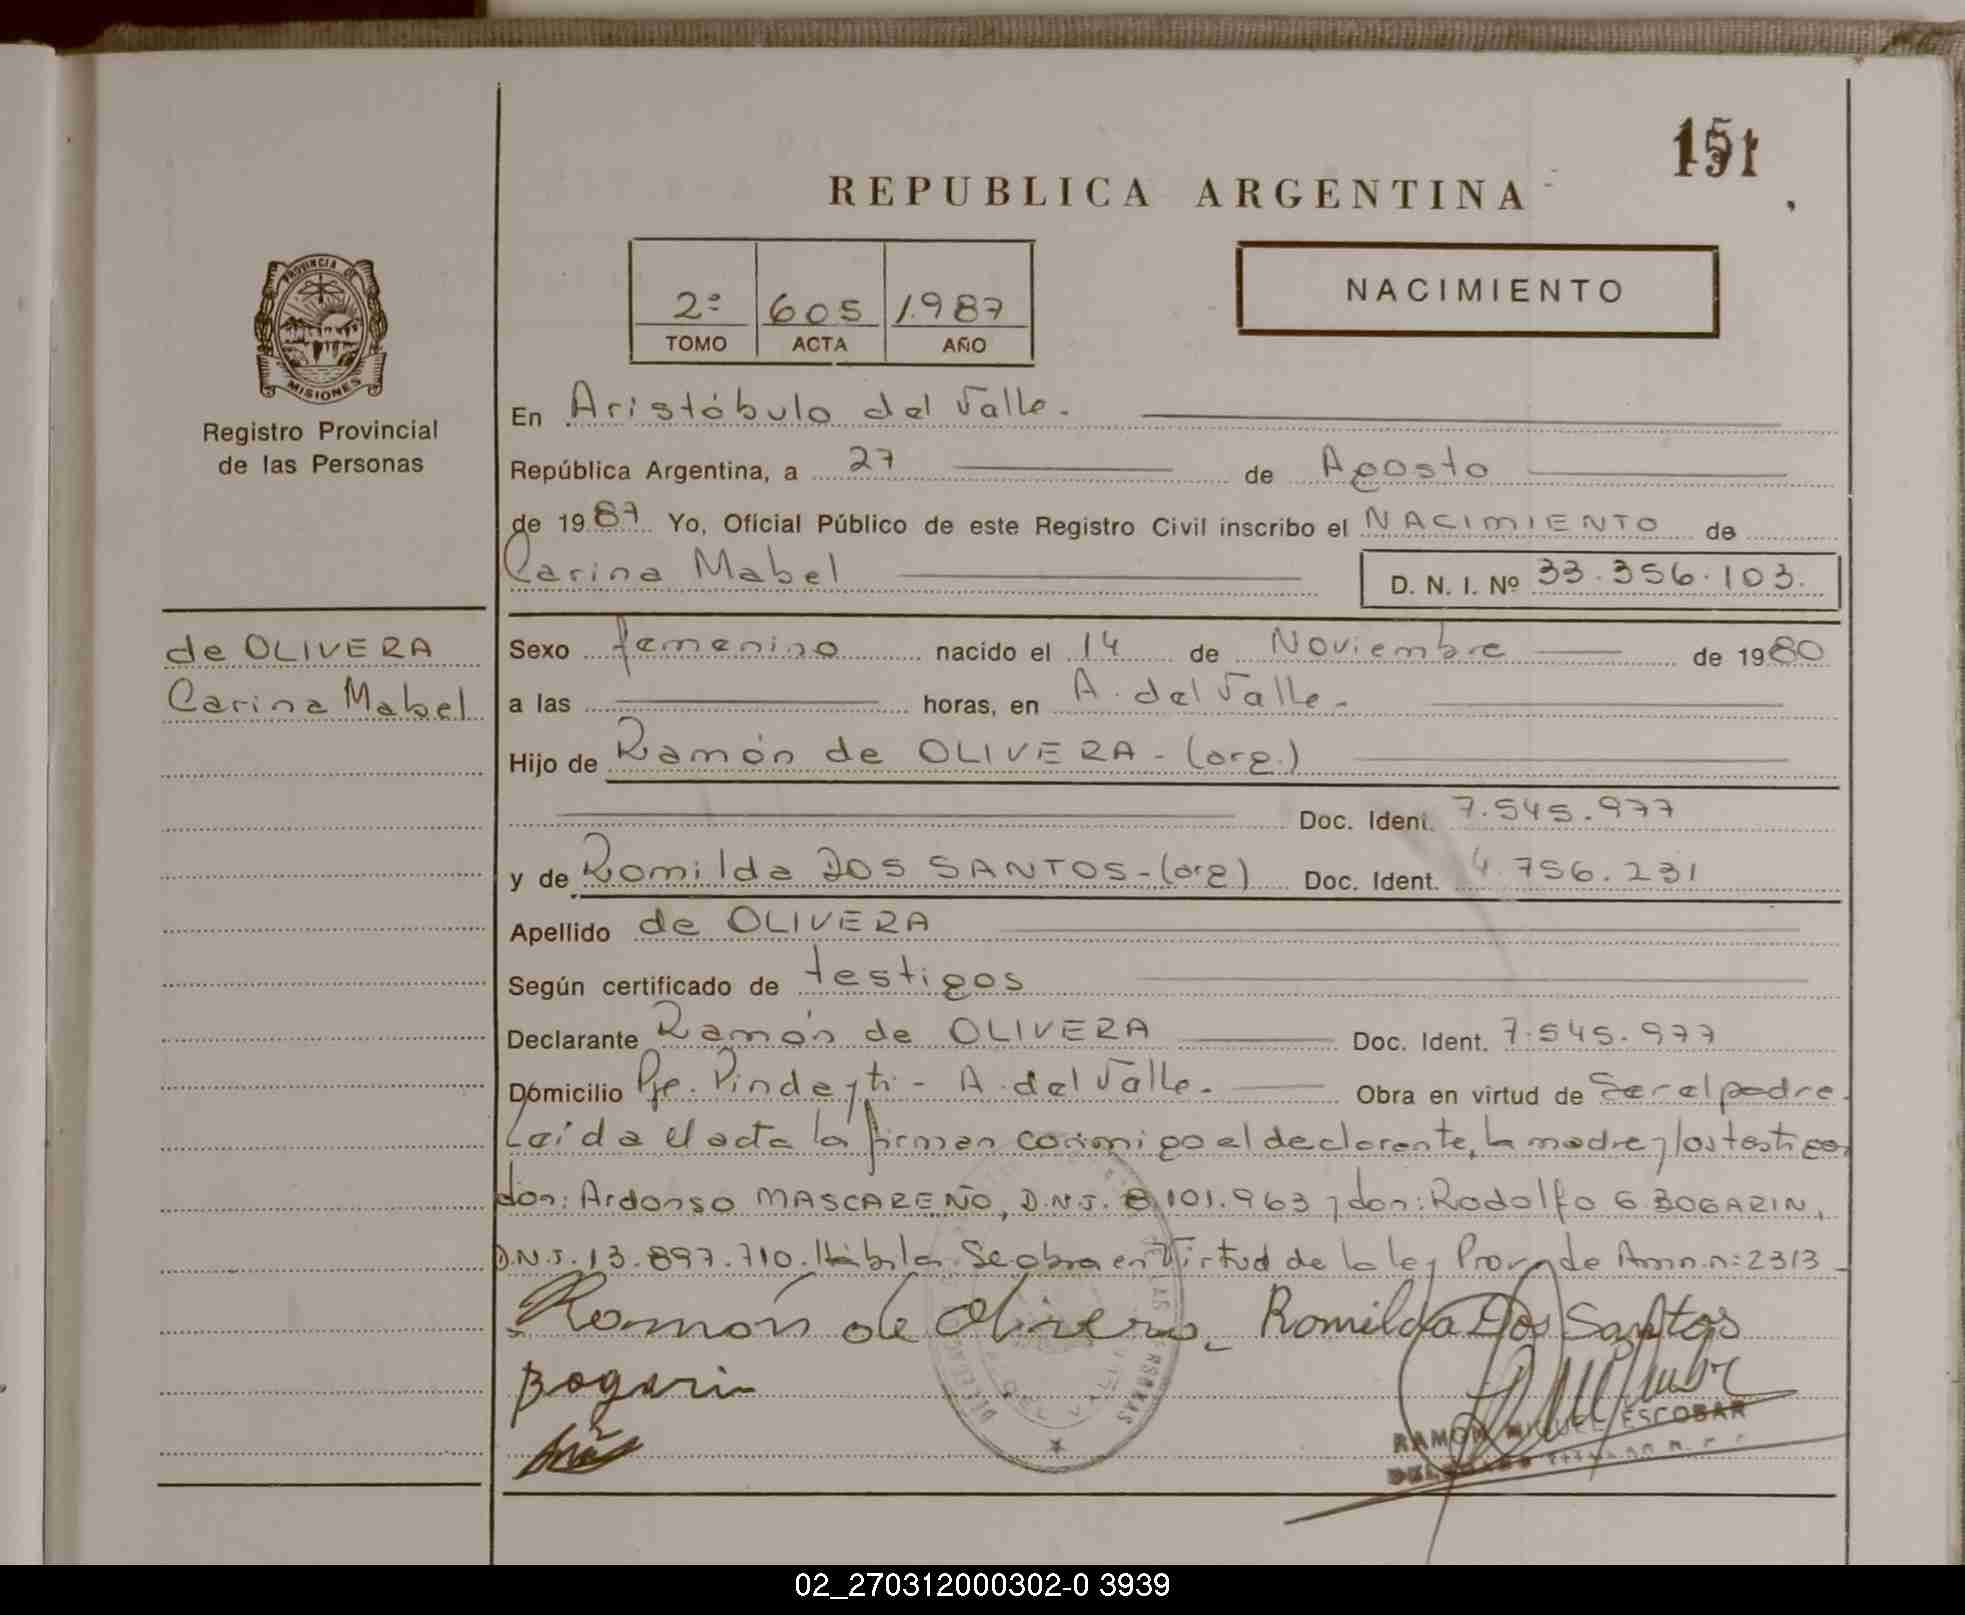 151
REPUBLICA ARGENTINA
2º 605 1.987
TOMO ACTA AÑO
NACIMIENTO
PROVINCIA DE
MISIONES
Registro Provincial
de las Personas
En Aristóbulo del Valle.
República Argentina, a 27 de Agosto
de 1987 Yo, Oficial Público de este Registro Civil inscribo el NACIMIENTO de
Carina Mabel D. N. I. Nº 33.356.103.
de OLIVERA
Carina Mabel
Sexo femenino nacido el 14 de Noviembre de 1980
a las horas, en A. del Valle.
Hijo de Ramón de OLIVERA - (arg.)
Doc. Ident. 7.545.977
y de Romilda DOS SANTOS - (arg) Doc. Ident. 4.756.231
Apellido de OLIVERA
Según certificado de testigos
Declarante Ramón de OLIVERA Doc. Ident. 7.545.977
Domicilio Pje. Pindayti - A. del Valle. Obra en virtud de Ser el padre.
Leída el acta la firman conmigo el declarante, la madre y los testigos
don: Ardonso MASCAREÑO, D.N.I. 8.101.963 y don: Rodolfo G. BOGARIN,
D.N.I. 13.897.710. Hábiles. Se obra en Virtud de la ley Prov. de Amn. n: 2313
Ramón de Olivera Romilda Dos Santos
Bogarin
RAMON MIGUEL ESCOBAR
02_270312000302-0 3939